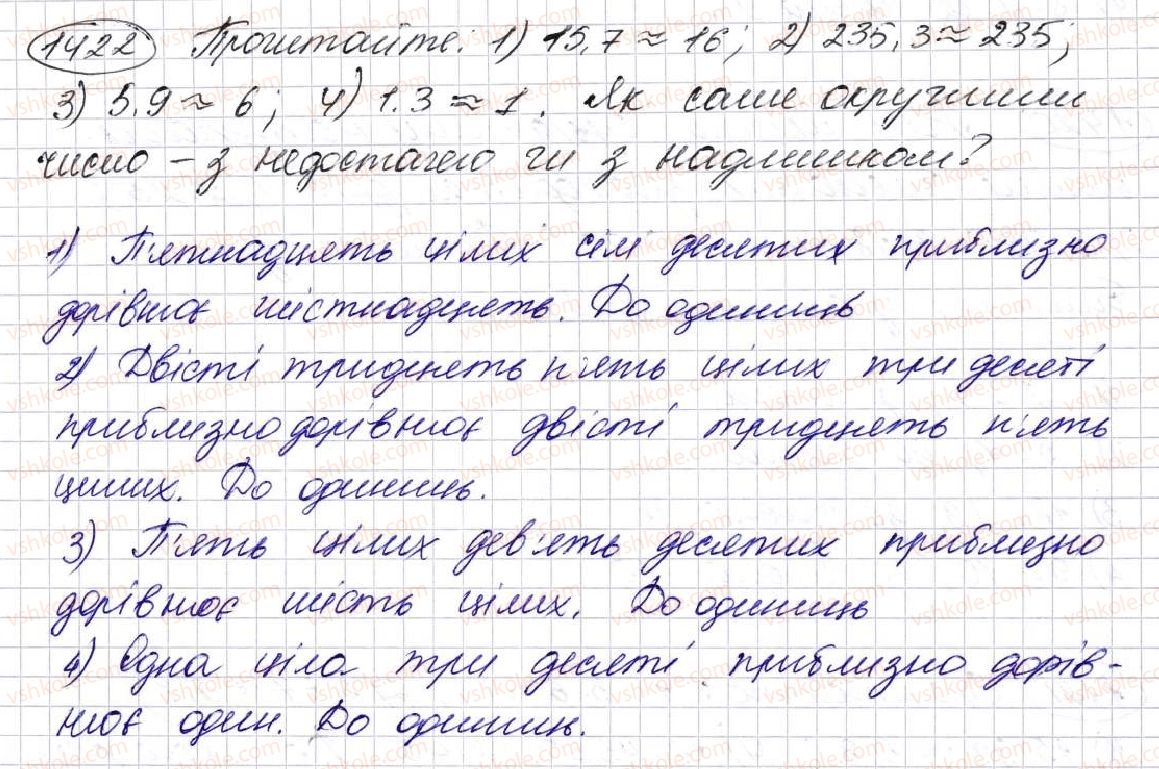 1422 Прочитайте: 1) 15,7 ≈ 16; 2) 235,3 ≈ 235;
3) 5,9 ≈ 6; 4) 1.3 ≈ 1. Як саме округлили
число – з недостачею чи з надлишком?
1) П'ятнадцять цілих сім десятих приблизно
дорівнює шістнадцять. До одиниць
2) Двісті тридцять п'ять цілих три десяті
приблизно дорівнює двісті тридцять п'ять
цілих. До одиниць.
3) П'ять цілих дев'ять десятих приблизно
дорівнює шість цілих. До одиниць
4) Одна ціла три десяті приблизно дорів-
нює один. До одиниць.